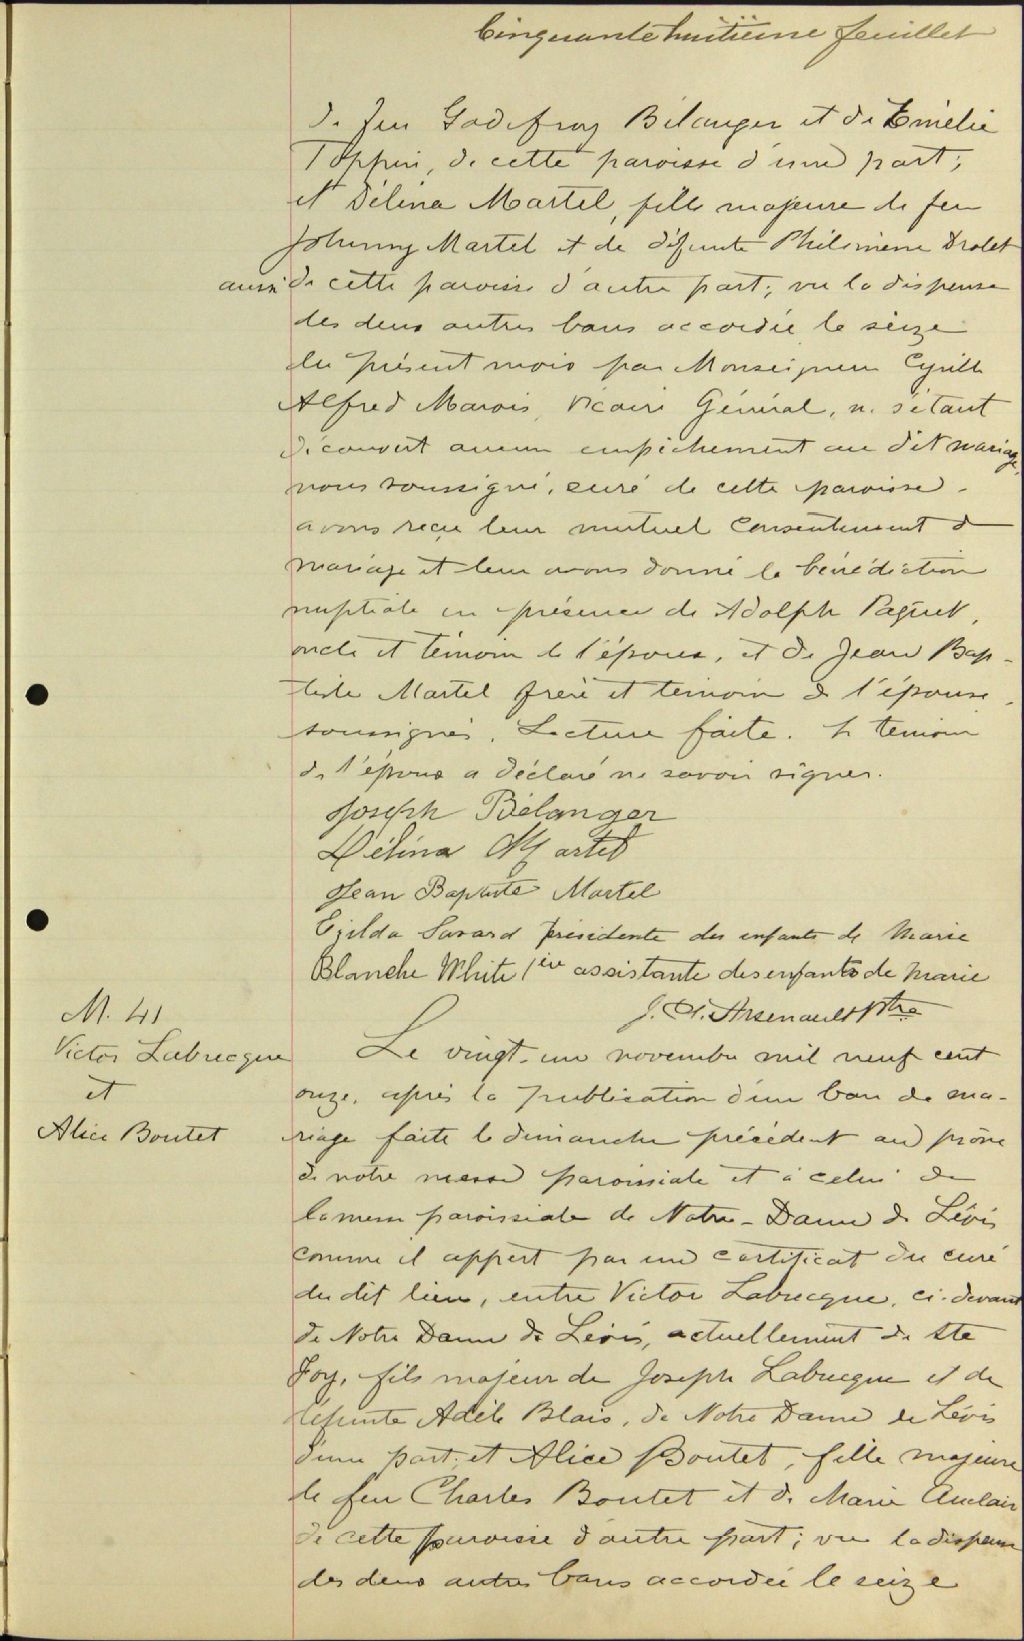 Cinquante huitième feuillet
de feu Godefroy Bélanger et de Emélie
de cette paroisse d'une part;
et Délina Martel, fille majeure de feu
Johnny Martel et de défunte Philomène Drolet
aussi de cette paroisse d'autre part; vu la dispense
des deux autres bans accordée le seize
du présent mois par Monseigneur Cyrille
Alfred Marois, Vicaire Général, ne s'étant
découvert aucun empêchement au dit mariage,
nous soussigné, curé de cette paroisse
avons reçu leur mutuel consentement de
mariage et leur avons donné la bénédiction
nuptiale en présence de Adolph Paquet,
oncle et témoin de l'époux, et de Jean Bap-
tiste Martel frère et témoin de l'épouse,
soussignés. Lecture faite. Le témoin
de l'époux a déclaré ne savoir signer.
Joseph Bélanger
Délina Martel
Jean Baptiste Martel
Egilda Savard présidente des enfants de Marie
Blanche White 1ère assistante des enfants de Marie
Arsenault Ptre
M. 41
Victor Labrecque
et
Alice Boutet
Le vingt-un novembre mil neuf cent
onze, après la publication d'un ban de ma-
riage faite le dimanche précédent au prône
de notre messe paroissiale et à celui de
la messe paroissiale de Notre-Dame de Lévis
comme il appert par un certificat du curé
du dit lieu, entre Victor Labrecque, ci-devant
de Notre Dame de Lévis, actuellement de Ste
Foy, fils majeur de Joseph Labrecque et de
défunte Adèle Blais, de Notre Dame de Lévis
d'une part; et Alice Boutet, fille majeure
de feu Charles Boutet et de Marie Auclair
de cette paroisse d'autre part; vu la dispense
des deux autres bans accordée le seize